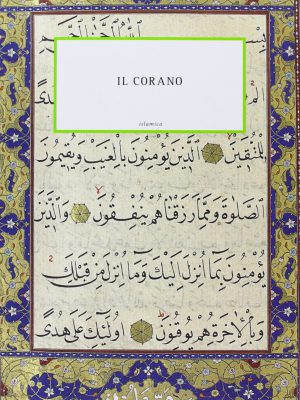 IL CORANO
islamica
هُدًى
لِلْمُتَّقِينَ الَّذِينَ يُؤْمِنُونَ بِالْغَيْبِ وَيُقِيمُونَ
الصَّلٰوةَ وَمِمَّا رَزَقْنَاهُمْ يُنْفِقُونَ وَالَّذِينَ
يُؤْمِنُونَ بِمَا اُنْزِلَ اِلَيْكَ وَمَا اُنْزِلَ مِنْ قَبْلِكَ
وَبِالْاٰخِرَةِ هُمْ يُوقِنُونَ اُولٰئِكَ عَلٰى هُدًى